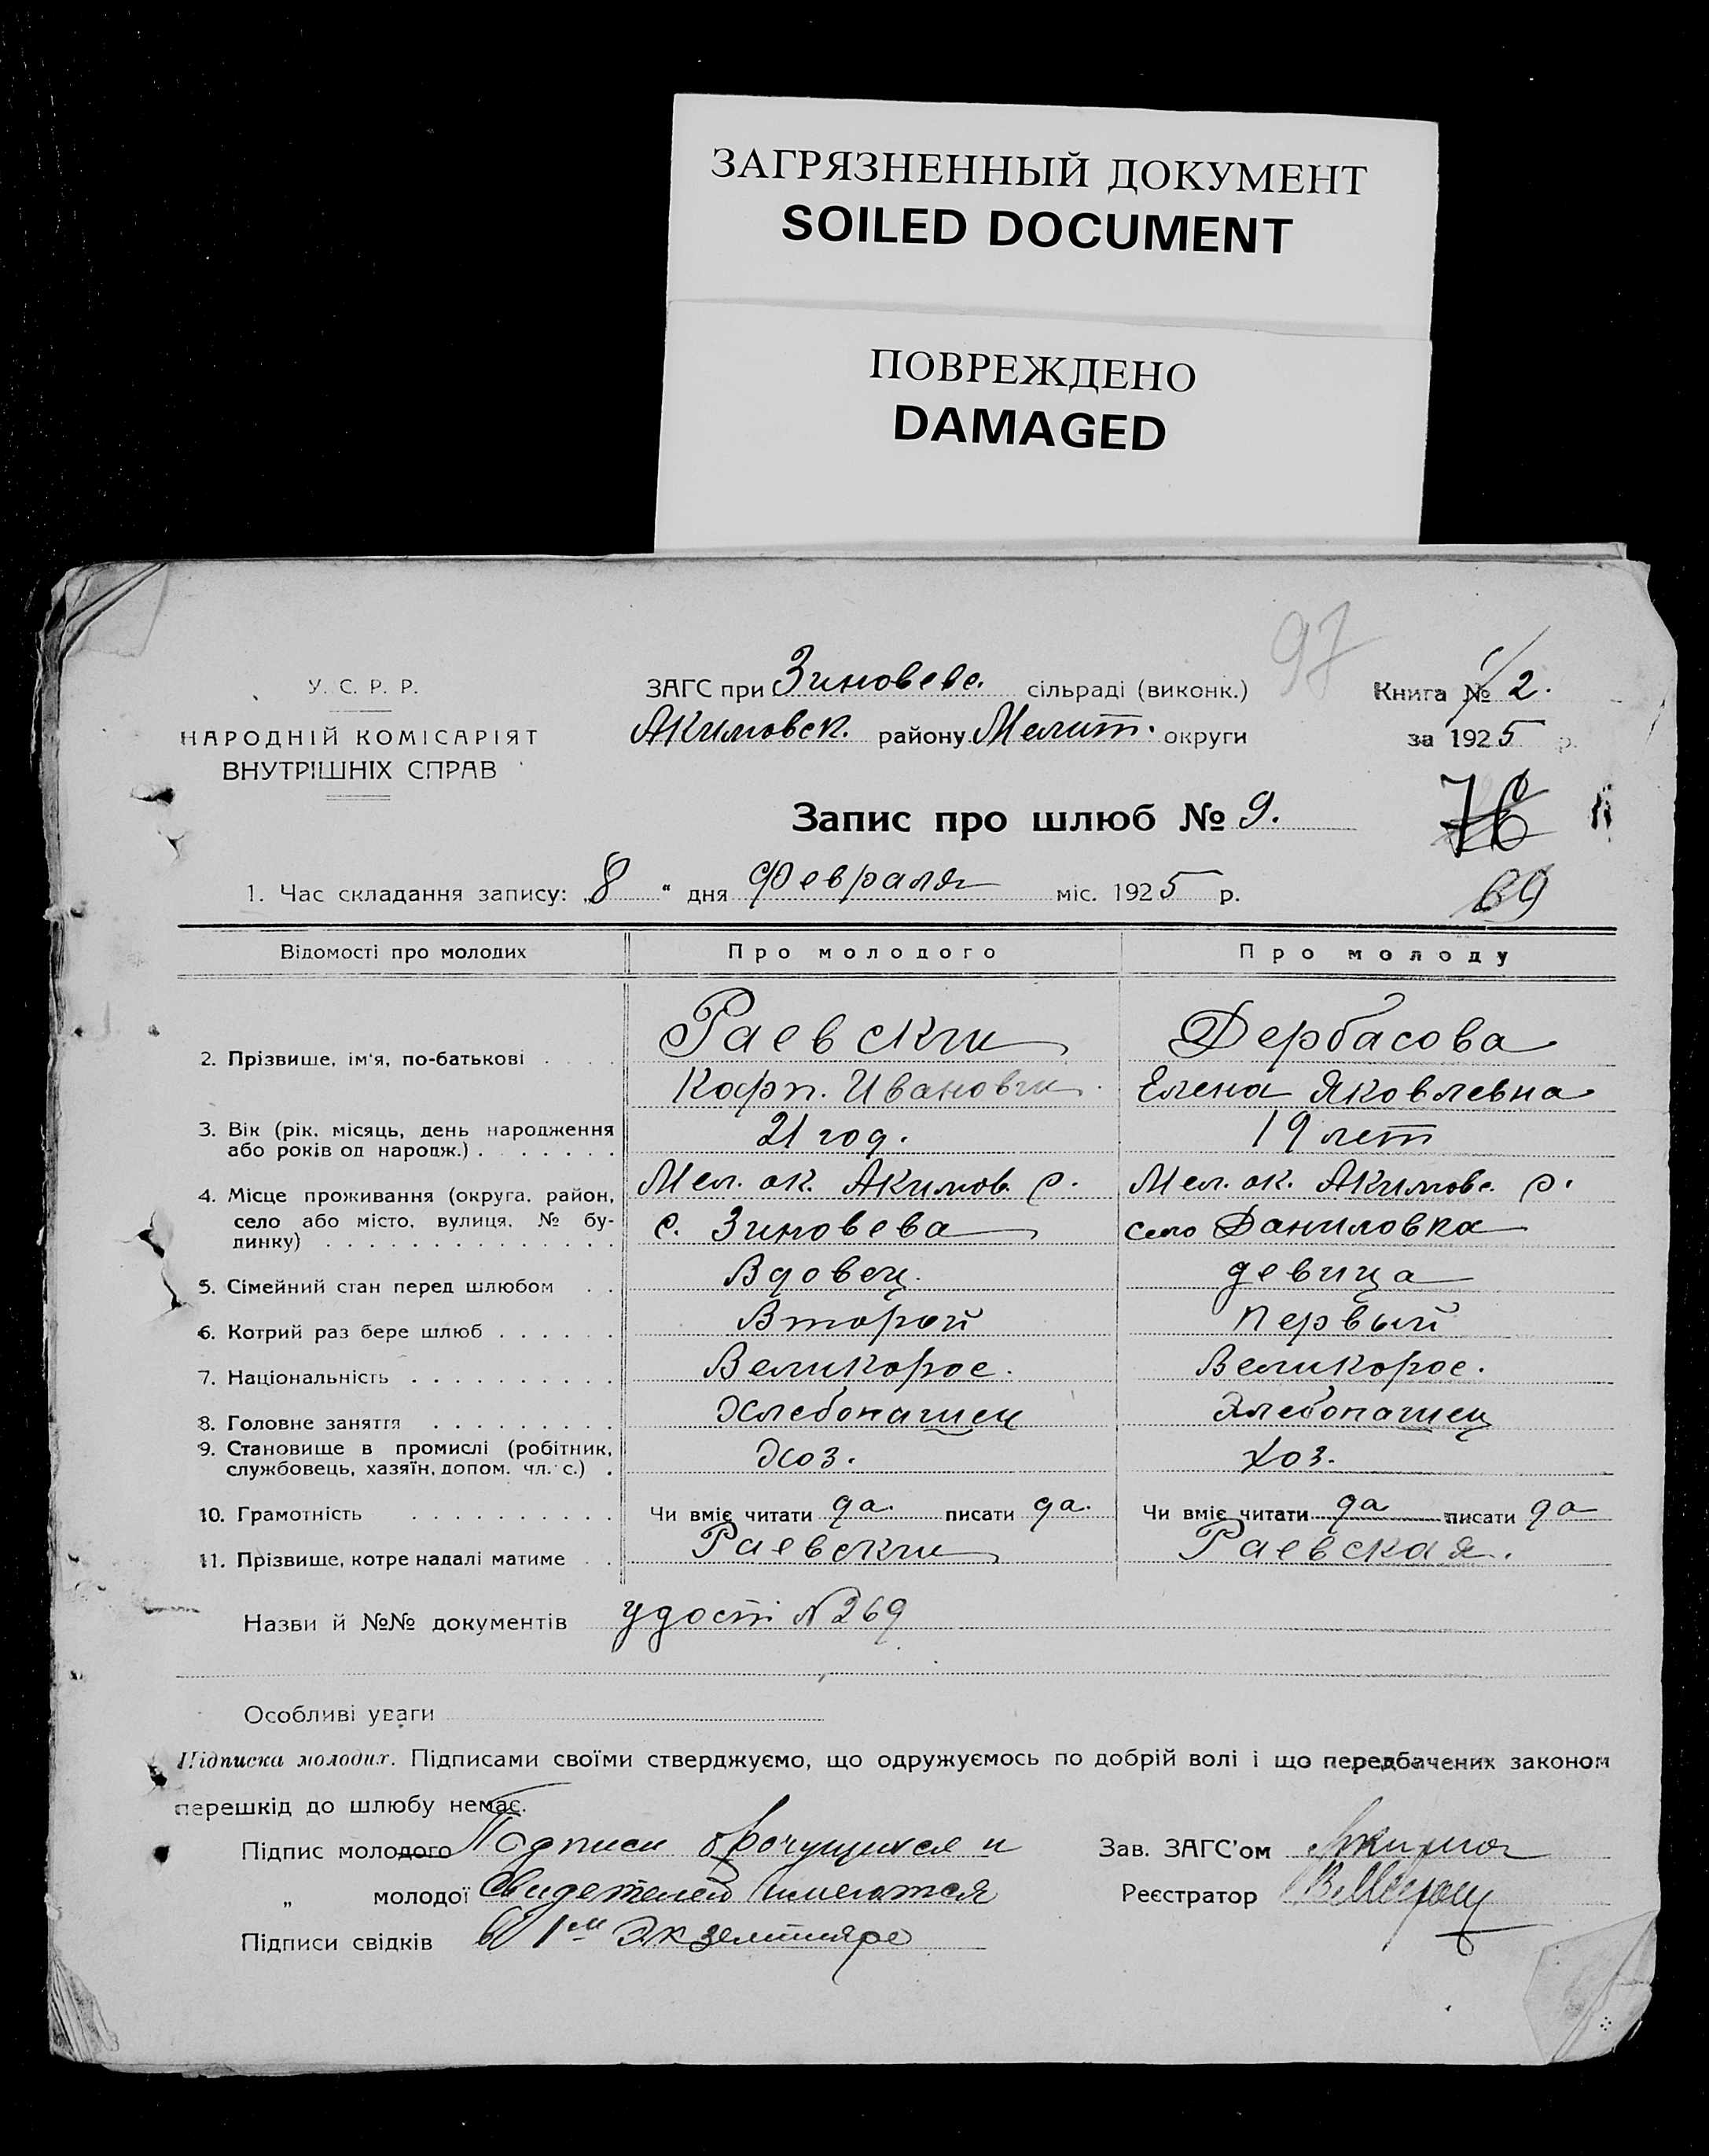 ЗАГРЯЗНЕННЫЙ ДОКУМЕНТ
SOILED DOCUMENT
ПОВРЕЖДЕНО
DAMAGED
97
У. С. Р. Р.
НАРОДНІЙ КОМІСАРІЯТ
ВНУТРІШНІХ СПРАВ
ЗАГС при Зиновевс. сільраді (виконк.)
Акимовск. району Мелит. округи
Книга № 2.
за 1925 р.
Запис про шлюб № 9.
76
89
1. Час складання запису: „8“ дня Февраля міс. 1925 р.
Відомості про молодих Про молодого Про молоду
2. Прізвище, ім'я, по-батькові . . . Раевски Дербасова
Карп. Ивановчи. Елена Яковлевна
3. Вік (рік, місяць, день народження
або років од народж.) . . . . . . . 21 год. 19 лет
4. Місце проживання (округа, район, Мел. ок. Акимов. р. Мел. ок. Акимовс. р.
село або місто, вулиця, № бу-
динку) . . . . . . . . . . . . . . с. Зиновева село Даниловка
5. Сімейний стан перед шлюбом . . Вдовец. девица
6. Котрий раз бере шлюб . . . . . . Второй первый
7. Національність . . . . . . . . . . Великорос. Великорос.
8. Головне заняття . . . . . . . . . Хлебопашец Хлебопашец
9. Становище в промислі (робітник,
службовець, хазяїн, допом. чл. с.) . Хоз. Хоз.
10. Грамотність . . . . . . . . . . Чи вміє читати да. писати да. Чи вміє читати да писати да
11. Прізвище, котре надалі матиме . . Раевски Раевская.
Назви й №№ документів удост. №269
Особливі уваги
Підписка молодих. Підписами своїми стверджуємо, що одружуємось по добрій волі і що передбачених законом
перешкід до шлюбу немає.
Підпис молодого Подписи брачущихся и Зав. ЗАГС'ом
„ молодої Свидетелей имеются Реєстратор
Підписи свідків в 1м Экземпляре